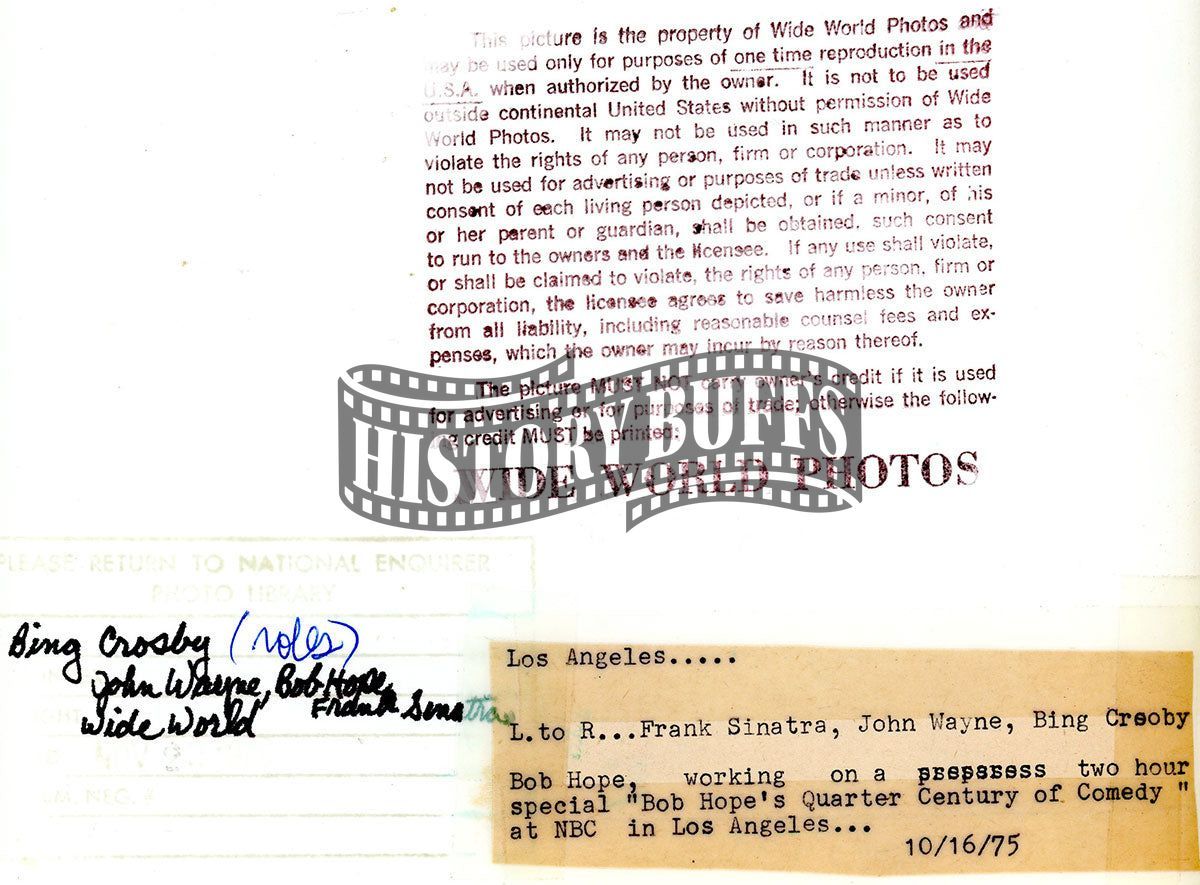 This picture is the property of Wide World Photos and
may be used only for purposes of one time reproduction in the
U.S.A. when authorized by the owner. It is not to be used
outside continental United States without permission of Wide
World Photos. It may not be used in such manner as to
violate the rights of any person, firm or corporation. It may
not be used for advertising or purposes of trade unless written
consent of each living person depicted, or if a minor, of his
or her parent or guardian, shall be obtained, such consent
to run to the owners and the licensee. If any use shall violate,
or shall be claimed to violate, the rights of any person, firm or
corporation, the licensee agrees to save harmless the owner
from all liability, including reasonable counsel fees and ex-
penses, which the owner may incur by reason thereof.
The picture MUST NOT carry owner's credit if it is used
for advertising or for purposes of trade; otherwise the follow-
ing credit MUST be printed:
HISTORY BUFFS
WIDE WORLD PHOTOS
PLEASE RETURN TO NATIONAL ENQUIRER
PHOTO LIBRARY
Bing Crosby (roles)
John Wayne, Bob Hope,
Frank Sinatra
Wide World
NEG. #
Los Angeles.....
L.to R...Frank Sinatra, John Wayne, Bing Crosby
Bob Hope, working on a two hour
special "Bob Hope's Quarter Century of Comedy "
at NBC in Los Angeles...
10/16/75